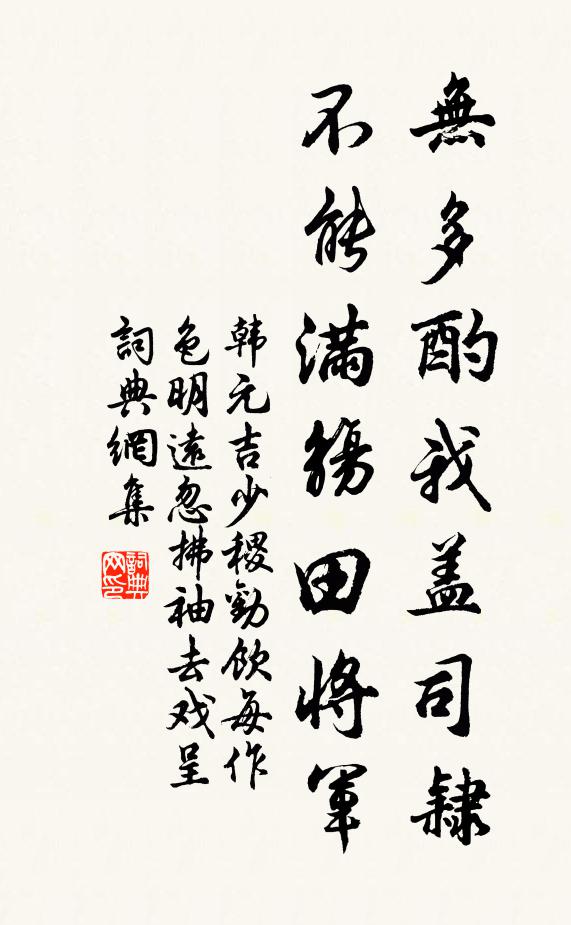 無多酌我盖司隸
不能滿觴田將軍
韩元吉少稷勸飲每作
色明遠忽拂袖去戏呈
詞典網集
詞典
网印